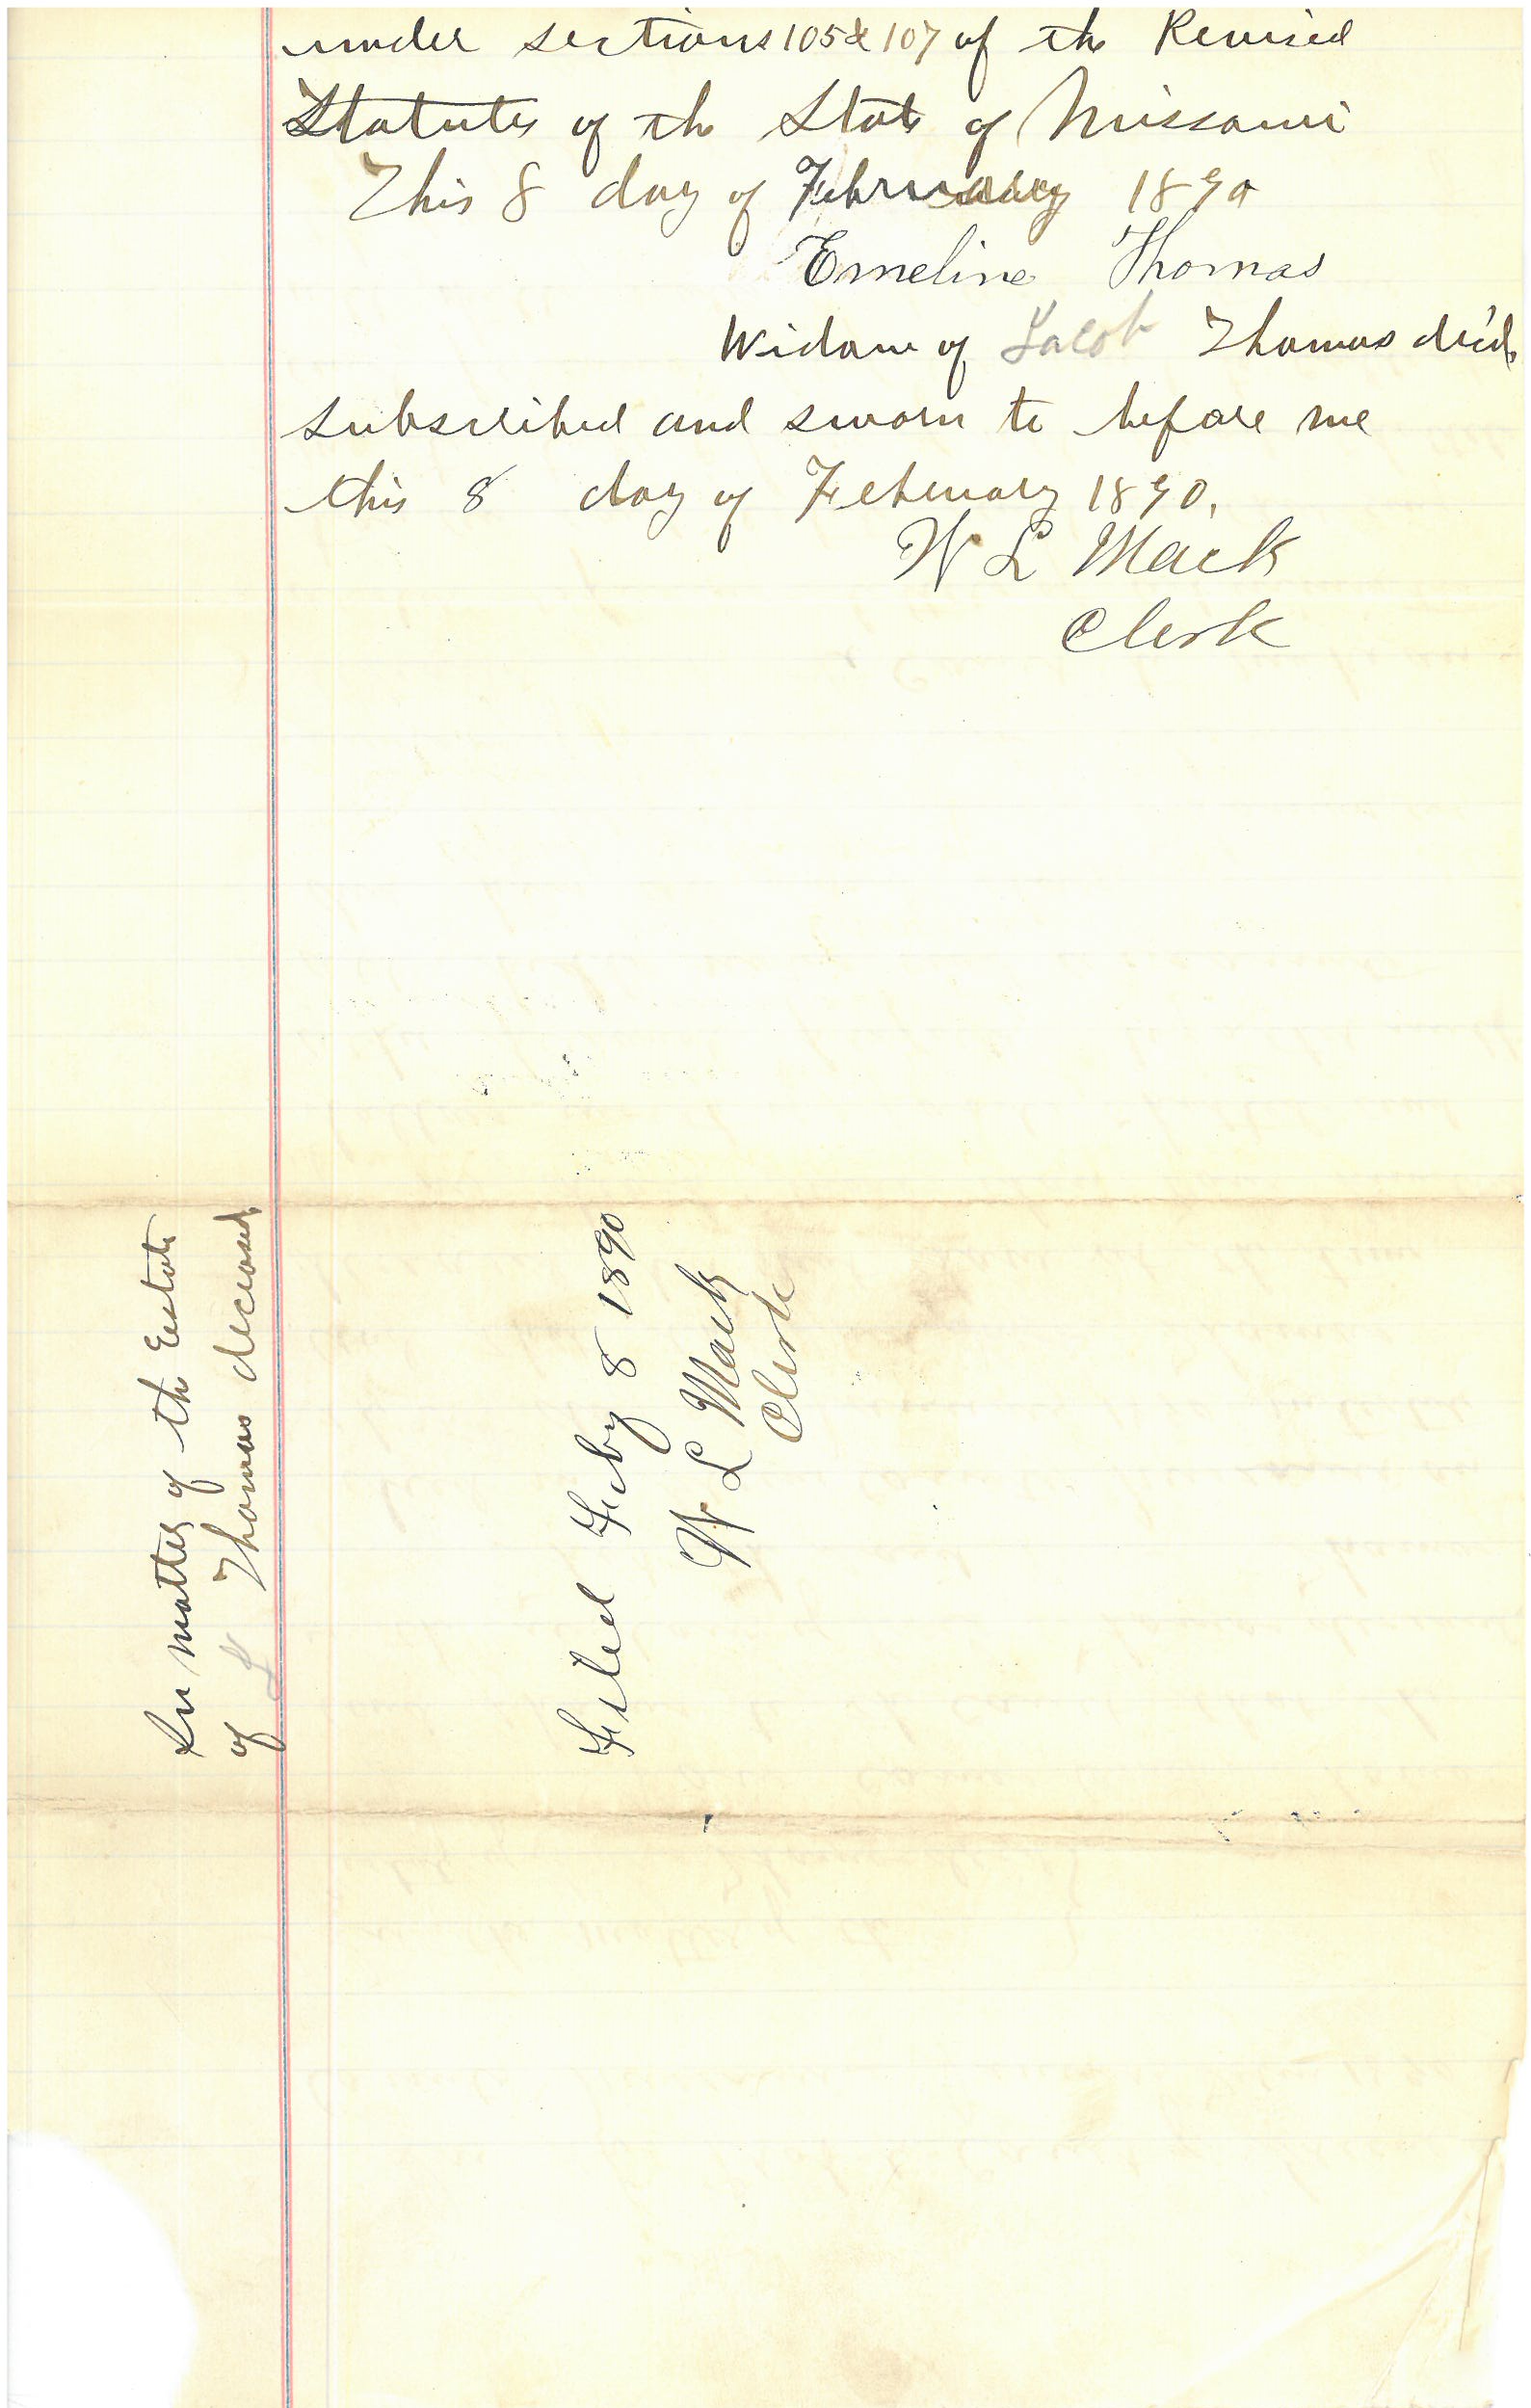 under sections 105 & 107 of the Revised
Statutes of the State of Missouri
This 8 day of February 1890
Emeline Thomas
Widow of Jacob Thomas dec'd.
subscribed and sworn to before me
this 8 day of February 1890.
W L Mack
Clerk
In matter of the Estate
of J Thomas deceased.
Filed Feby 8 1890
W L Mack
Clerk